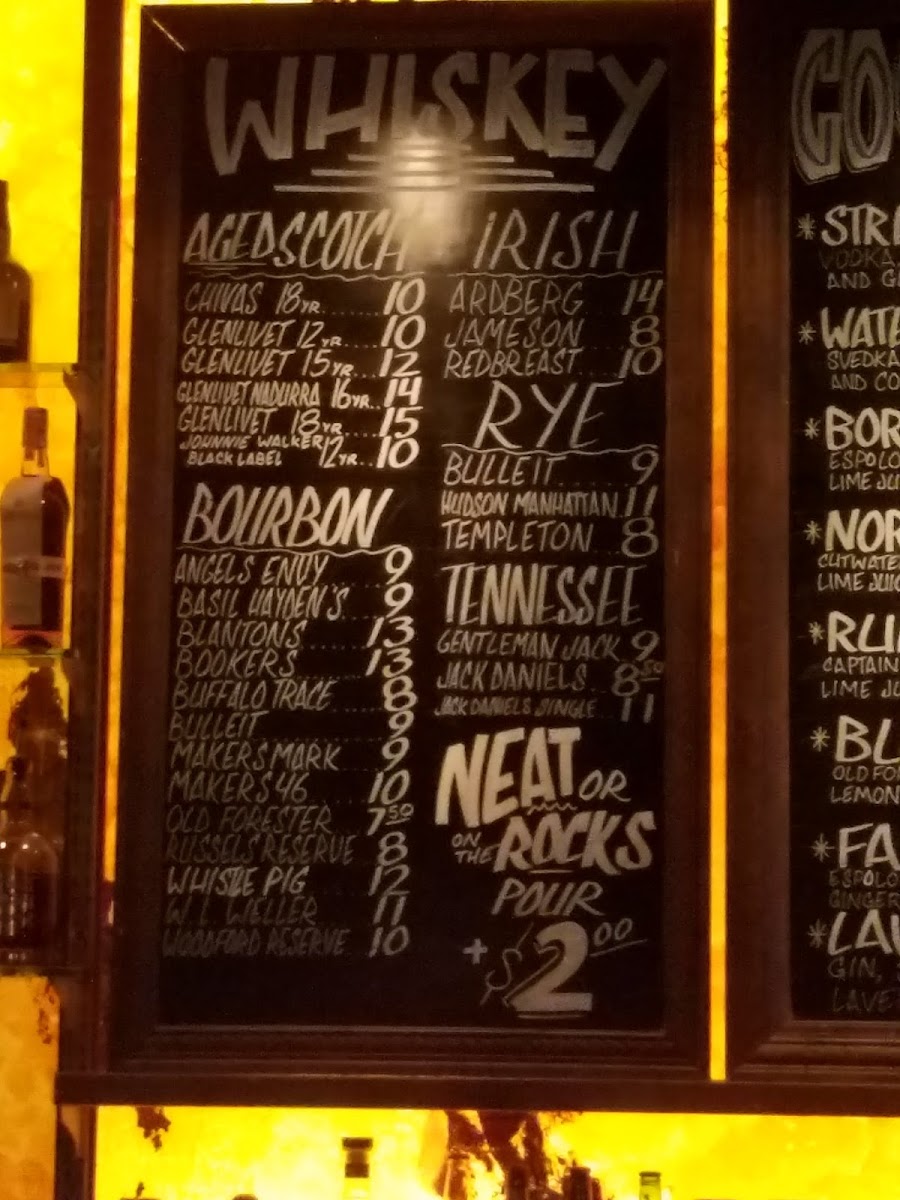 WHISKEY
AGED SCOTCH
CHIVAS 18YR.......10
GLENLIVET 12YR....10
GLENLIVET 15YR...12
GLENLIVET NADURRA 16YR..14
GLENLIVET 18YR....15
JOHNNIE WALKER
BLACK LABEL 12YR...10
BOURBON
ANGELS ENVY 9
BASIL HAYDEN'S 9
BLANTONS 13
BOOKERS 13
BUFFALO TRACE 8
BULLEIT 9
MAKERS MARK 9
MAKERS 46 10
OLD FORESTER 7.50
RUSSELS RESERVE 8
WHISTLE PIG 12
W.L. WELLER 11
WOODFORD RESERVE 10
IRISH
ARDBERG 14
JAMESON 8
REDBREAST 10
RYE
BULLEIT 9
HUDSON MANHATTAN 11
TEMPLETON 8
TENNESSEE
GENTLEMAN JACK 9
JACK DANIELS 8 50
JACK DANIELS SINGLE 11
NEAT OR
ON THE ROCKS
POUR
+ $2.00
GO
*STR
VODKA,
AND G
*WATE
SVEDKA
AND CO
*BOR
ESPOLO
LIME JUI
*NOR
CUTWATE
LIME JUIC
*RU
CAPTAIN
LIME JU
*BL
OLD FO
LEMON
*FA
ESPOLO
GINGER
*LAV
GIN,
LAVE